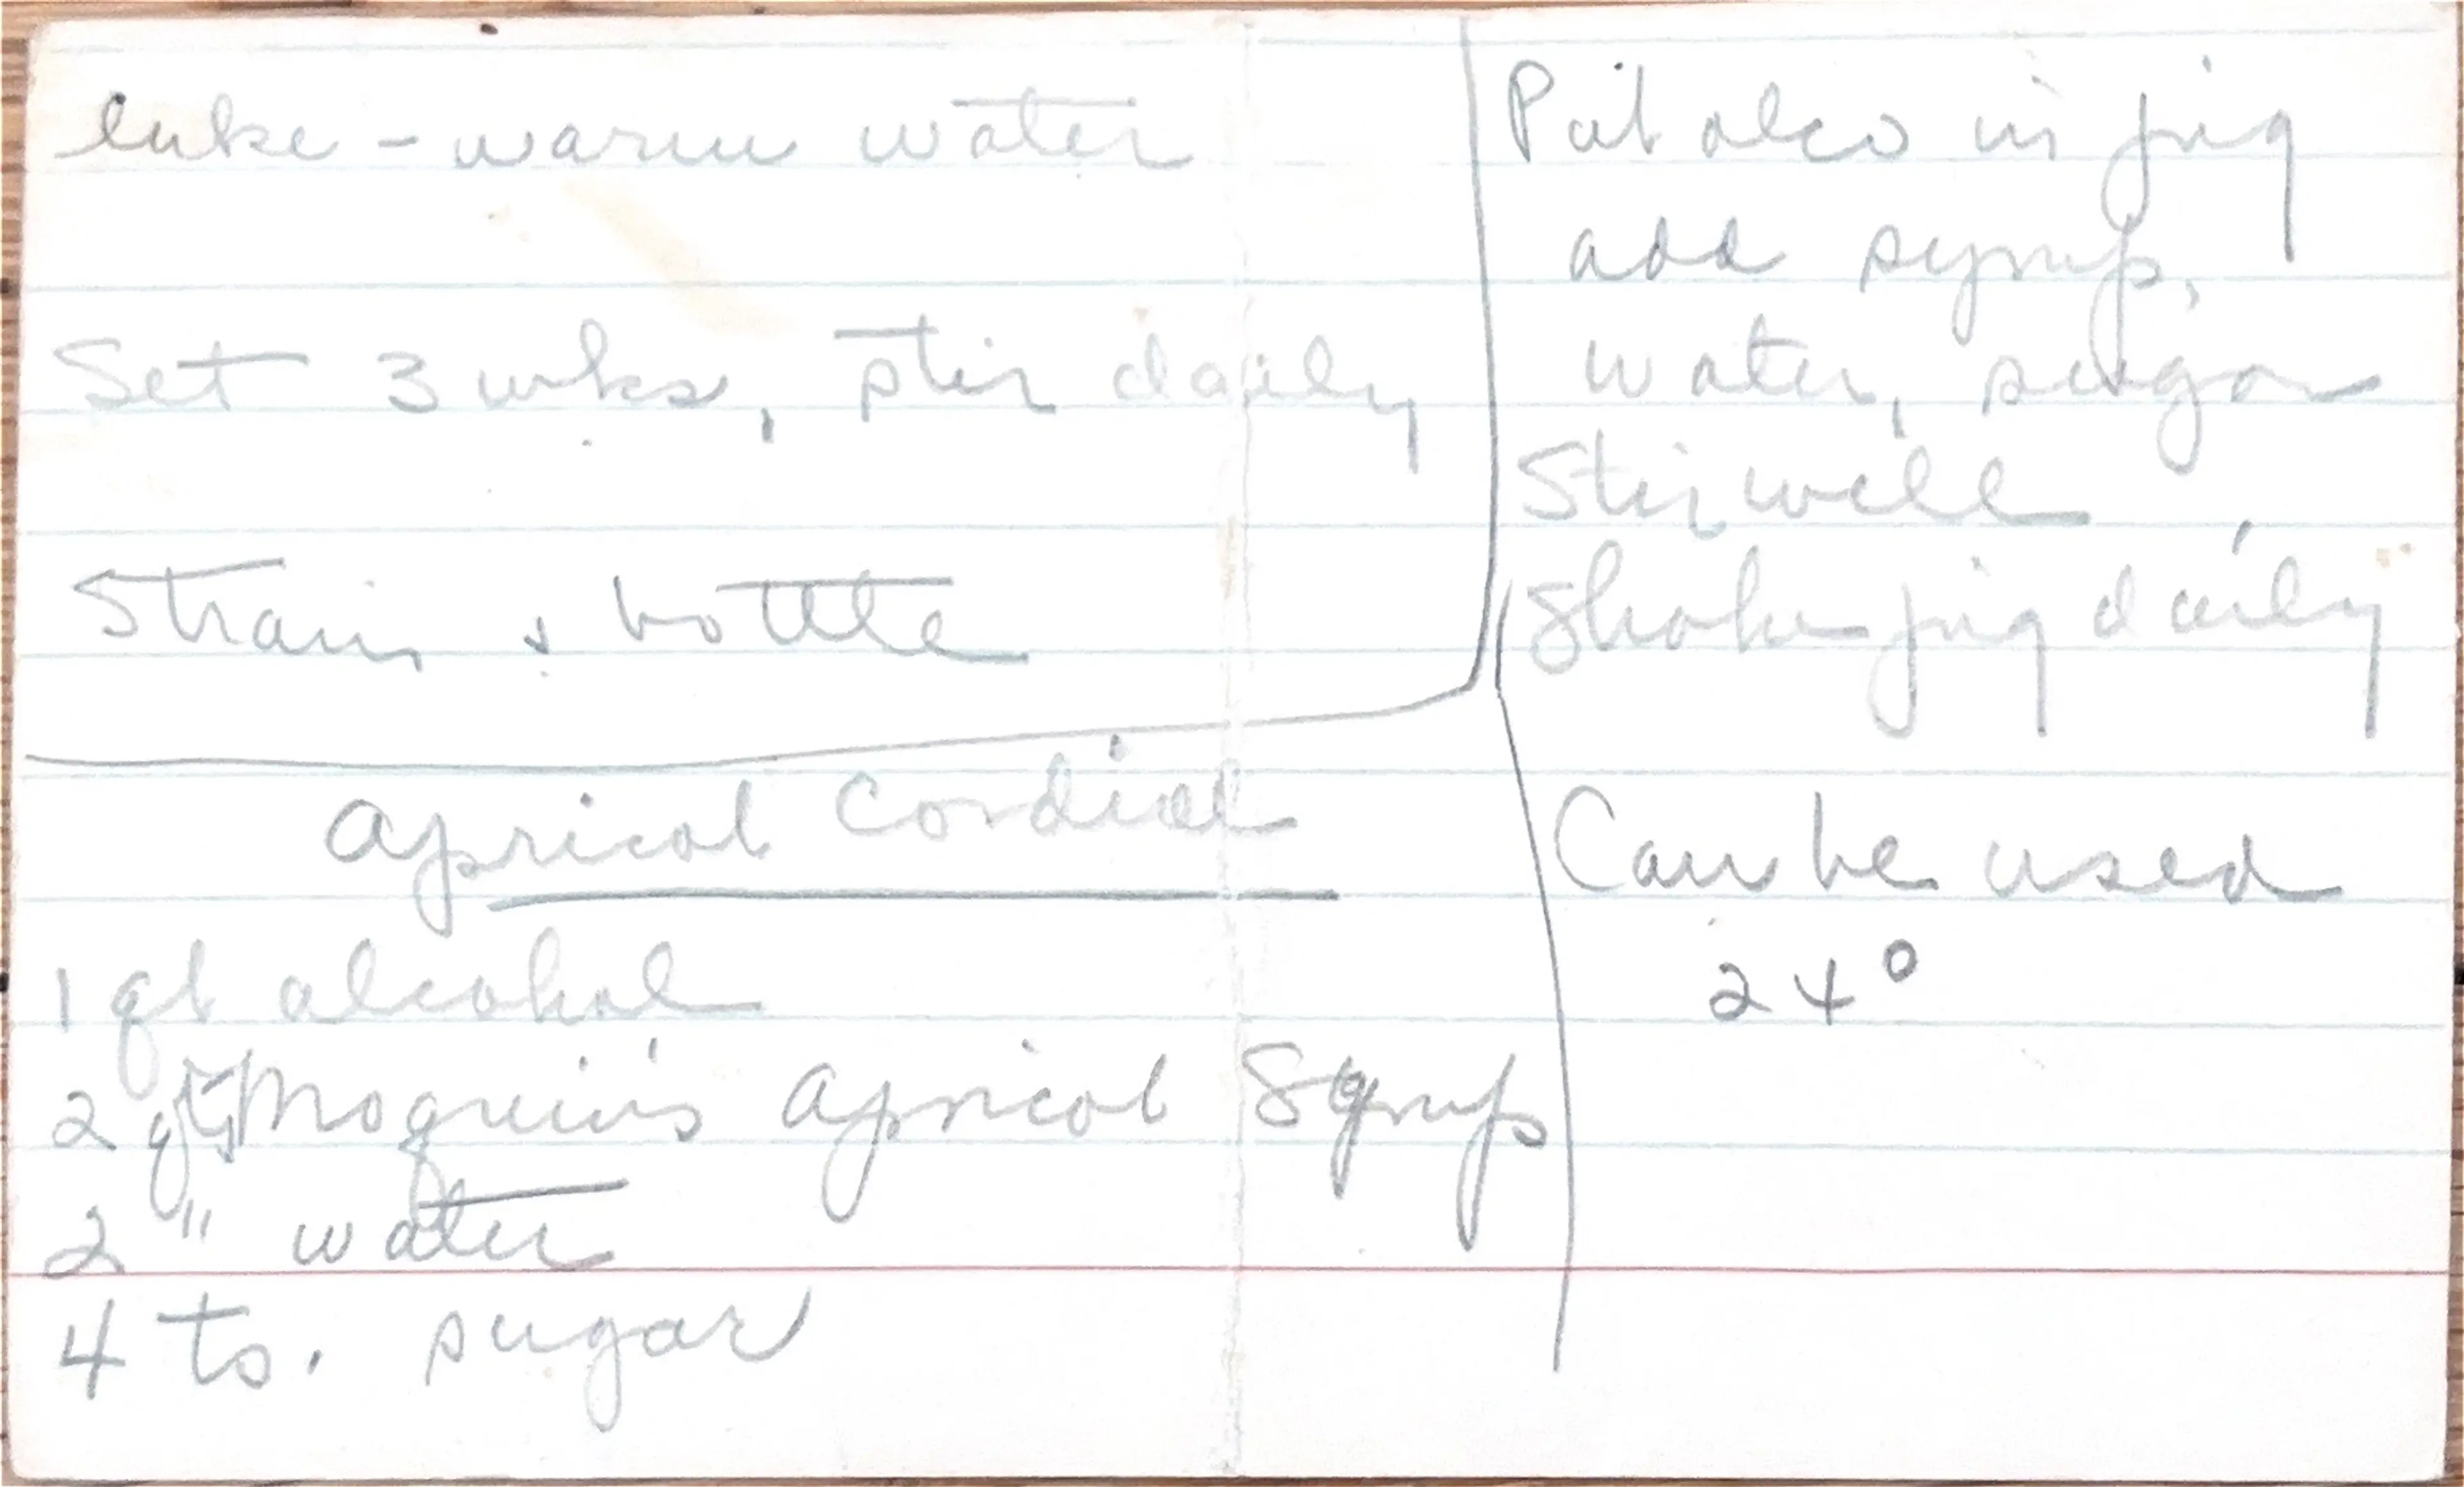 luke-warm water
Set 3 wks, stir daily
Strain & bottle
Apricot Cordial
1 qt alcohol
2 qts Moquin's Apricot Syrup
2 " water
4 tb. sugar
Put alco in jug
add syrup,
water, sugar
Stir well
Shake jug daily
Can be used
24°